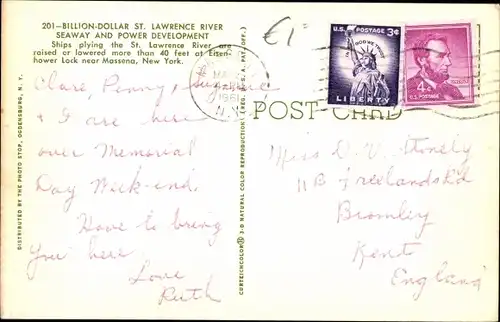 201—BILLION-DOLLAR ST. LAWRENCE RIVER
SEAWAY AND POWER DEVELOPMENT
Ships plying the St. Lawrence River are
raised or lowered more than 40 feet at Eisen-
hower Lock near Massena, New York.
Clare, Penny, Suzanne
& I are here
over Memorial
Day Week-end.
Have to bring
you here
Love
Ruth
DISTRIBUTED BY THE PHOTO STOP, OGDENSBURG, N. Y.
CURTEICHCOLOR 3-D NATURAL COLOR REPRODUCTION (REG. U.S.A. PAT. OFF.)
£1
N.Y.
U.S. POSTAGE 3¢
IN GOD WE TRUST
LIBERTY
4¢
U.S. POSTAGE
POST CARD
Miss D. V.
11B Freelands Rd
Bromley
Kent
England